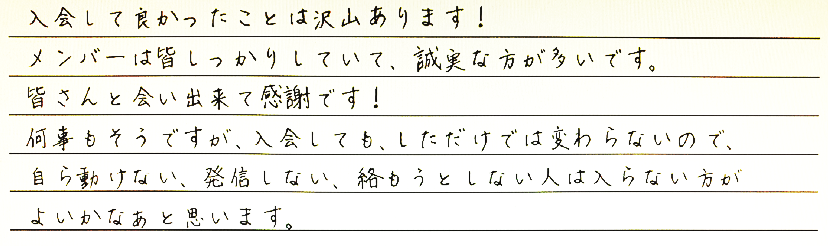 入会して良かったことは沢山あります！
メンバーは皆しっかりしていて、誠実な方が多いです。
皆さんと会い出来て感謝です！
何事もそうですが、入会しても、しただけでは変わらないので、
自ら動けない、発信しない、絡もうとしない人は入らない方が
よいかなぁと思います。